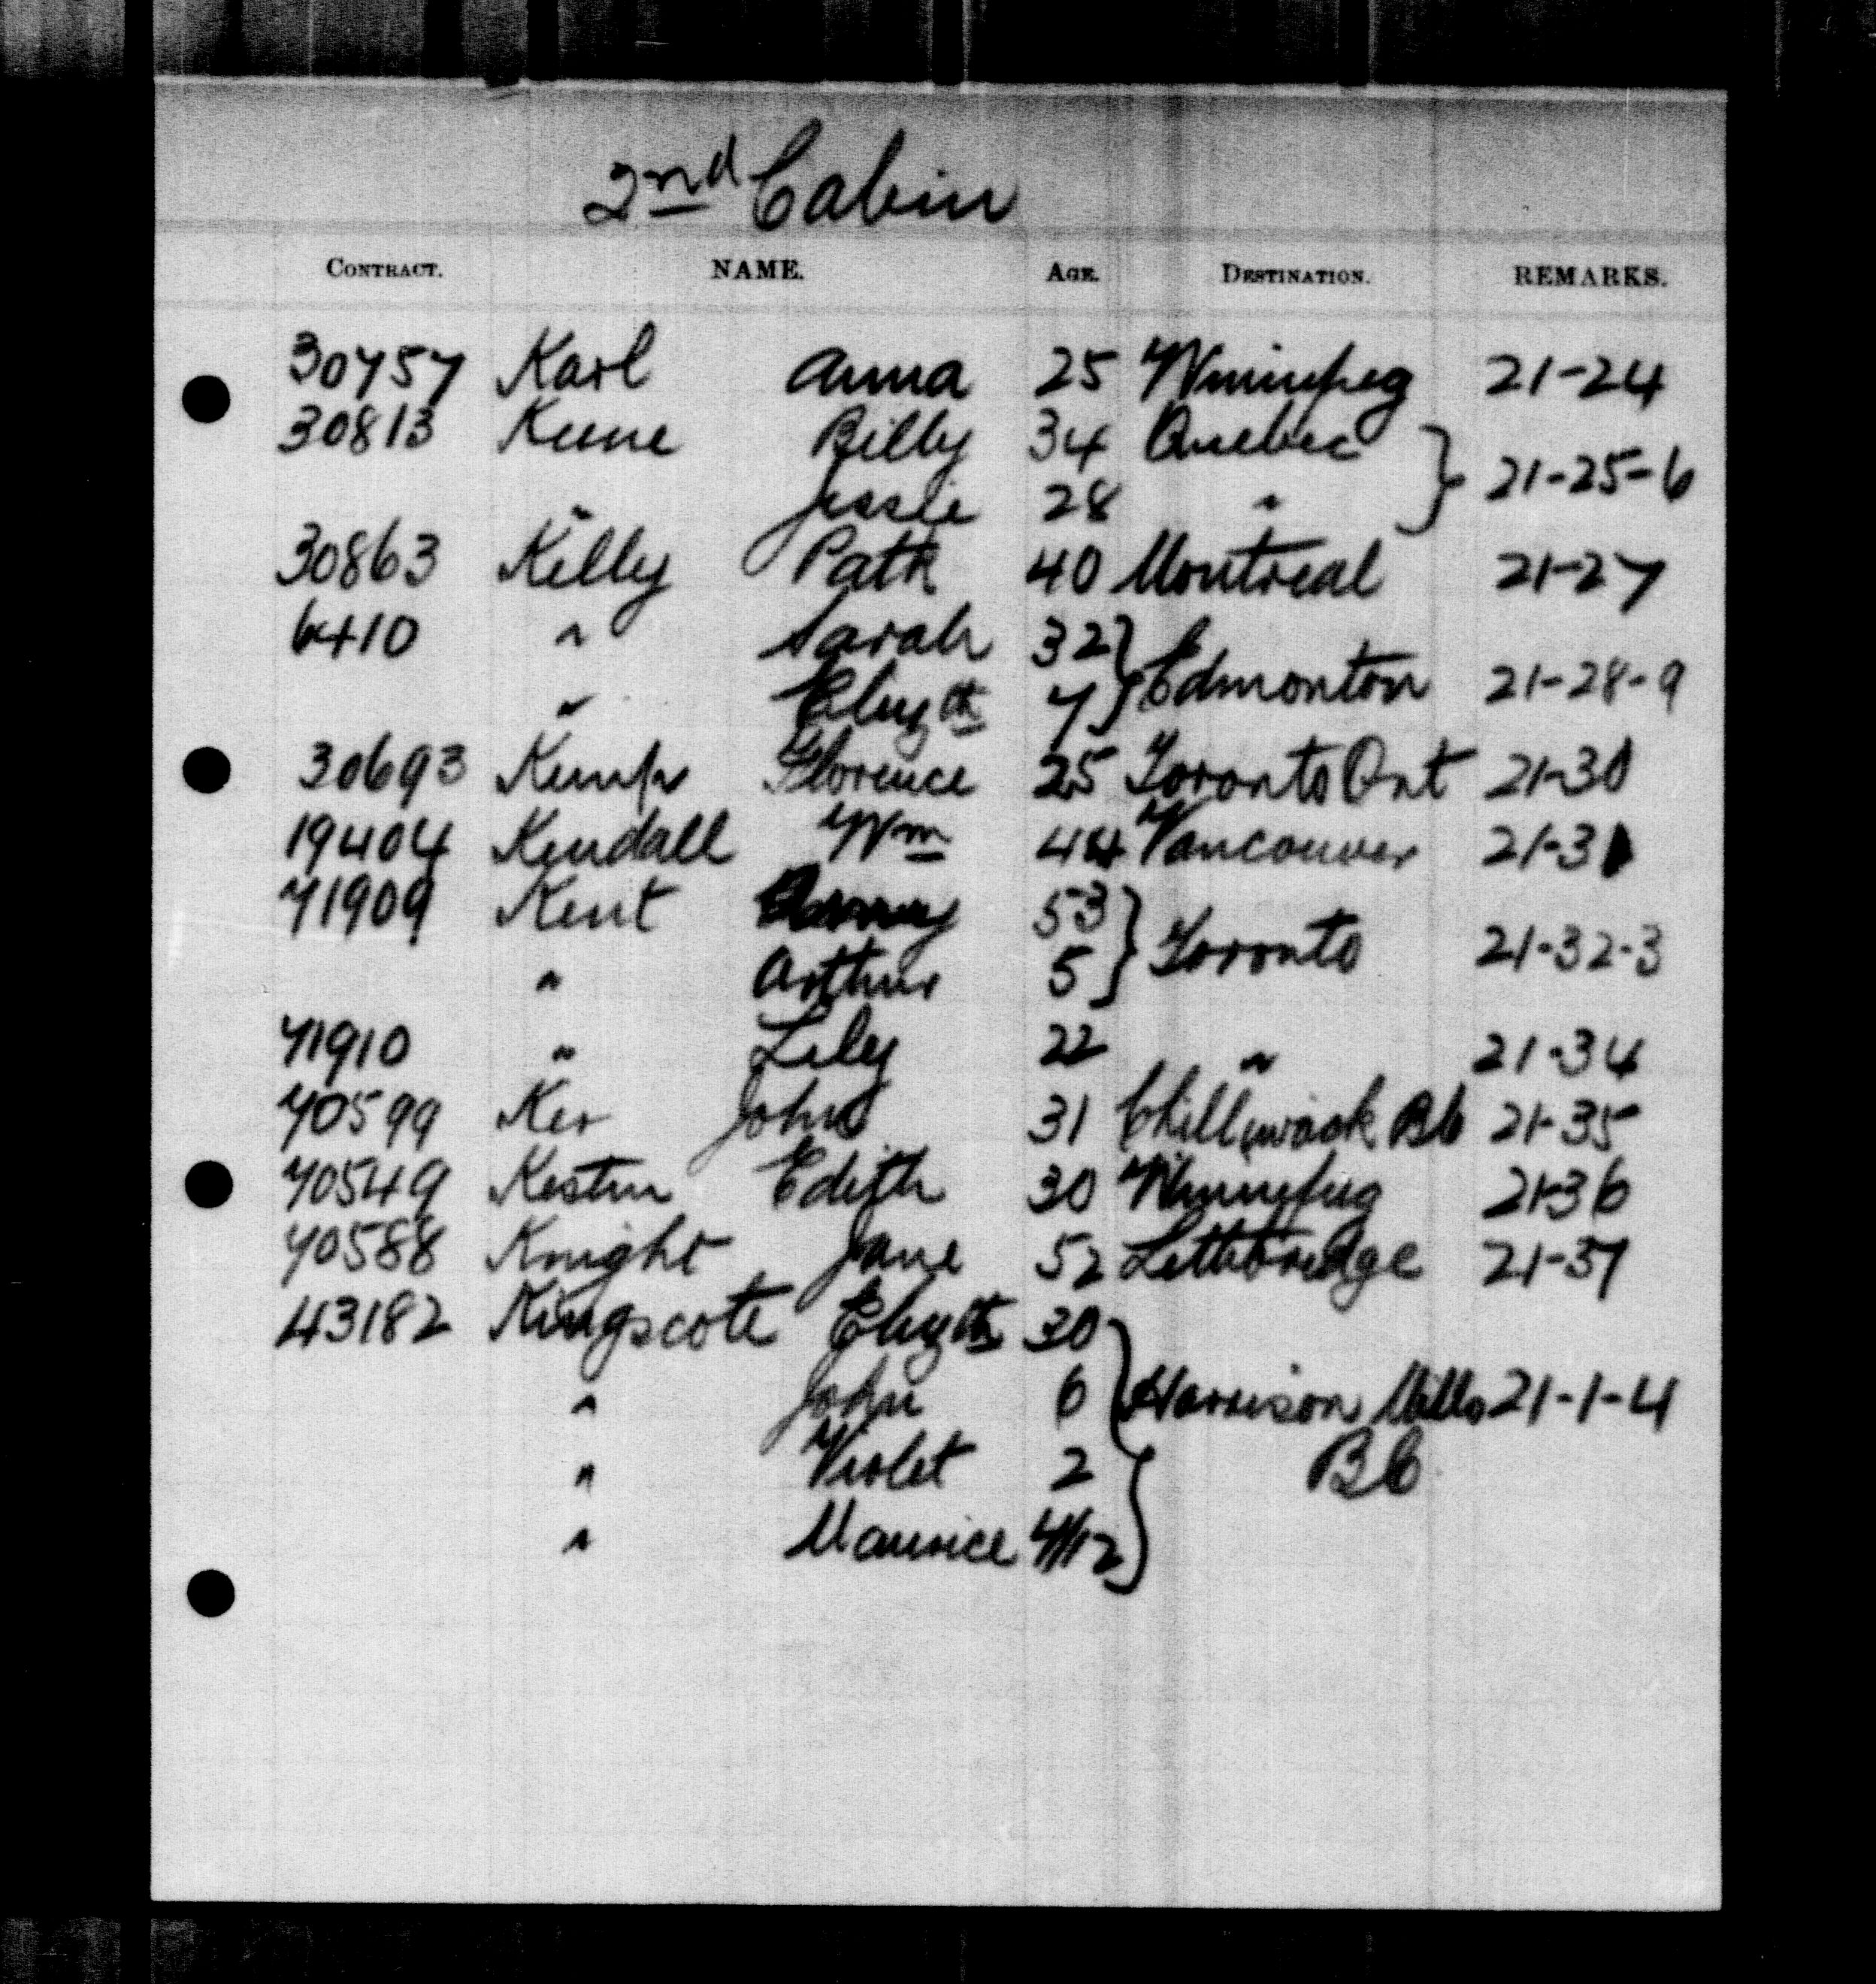 2nd Cabin
CONTRACT. NAME. AGE. DESTINATION. REMARKS.
30757 Karl Anna 25 Winnipeg 21-24
30813 Keene Billy 34 Quebec 21-25-6
" Jessie 28 "
30863 Kelly Patk 40 Montreal 21-27
6410 " Sarah 32
" Elizth 7 Edmonton 21-28-9
30693 Kemp Florence 25 Toronto Ont 21-30
19404 Kendall Wm 44 Vancouver 21-31
71909 Kent 53
" Arthur 5 Toronto 21-32-3
71910 " Lily 22 " 21-34
70599 Ker John 31 Chilliwack BC 21-35
70549 Edith 30 Winnipeg 21-36
70588 Knight Jane 52 Lethbridge 21-37
43182 Kingscote Elizth 30
" John 6 Harrison Mills 21-1-4
" Violet 2 BC
" Maurice 4/12